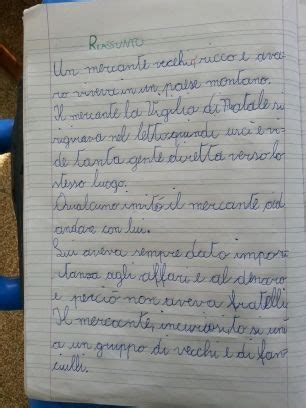 RIASSUNTO
Un mercante vecchio, ricco e ava-
ro viveva in un paese montano.
Il mercante la Vigilia di Natale si
rigirava nel letto, quindi uscì e vi-
de tanta gente diretta verso lo
stesso luogo.
Qualcuno invitò il mercante ad
andare con lui.
Lui aveva sempre dato impor-
tanza agli affari e al denaro
e perciò non aveva fratelli
Il mercante, incuriosito si unì
a un gruppo di vecchi e di fan-
ciulli.